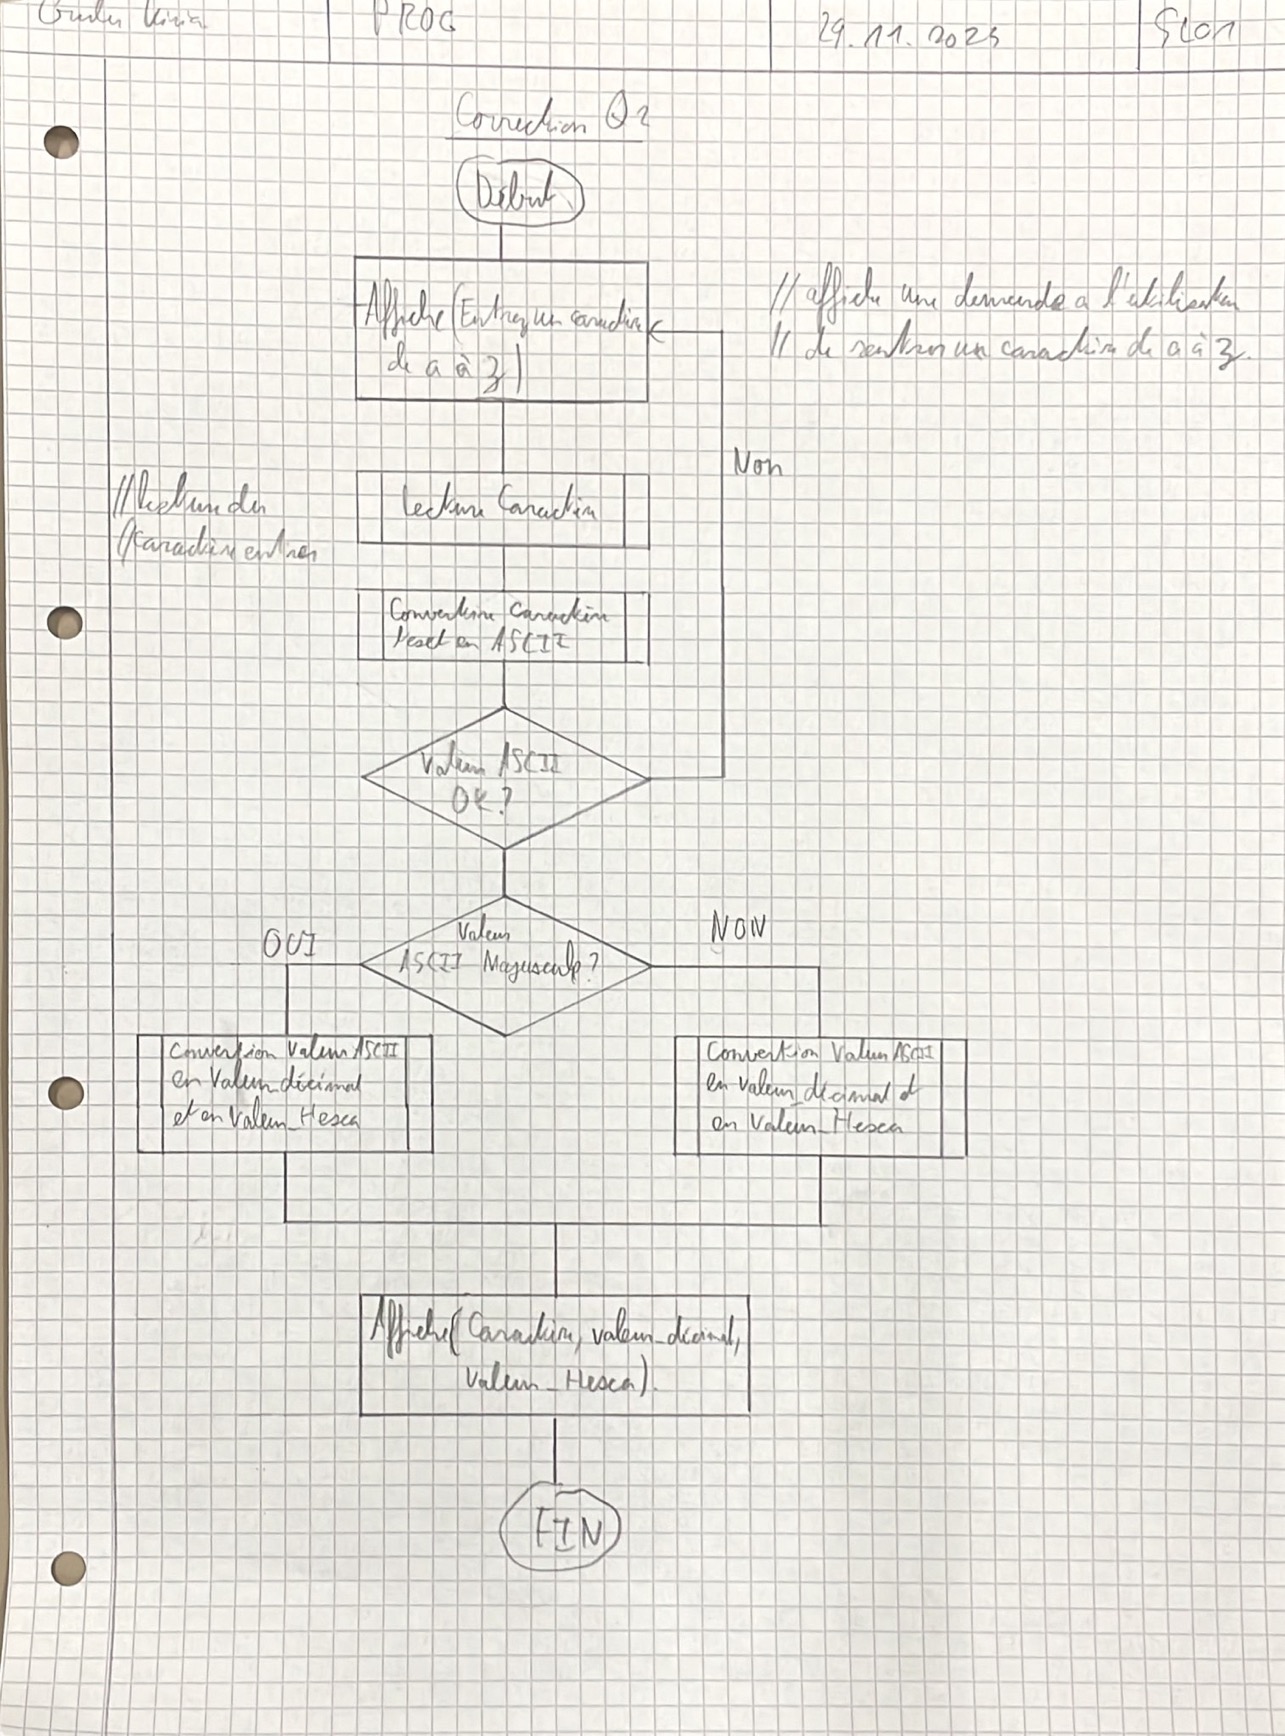 PROG
29.11.2025
SLO1
Correction Q2
Début
Affiche(Entrez un caractère
de a à z)
// affiche une demande a l'utilisateur
// de rentrer un caractère de a à z.
Non
// lecture du
// caractère entrer
Lecture Caractère
Convertire Caractère
en ASCII
Valeur ASCII
OK?
Valeur
ASCII Majuscule?
OUI
NON
Convertion Valeur ASCII
en Valeur_décimal
et en Valeur_Hexa
Convertion Valeur ASCII
en Valeur_décimal et
en Valeur_Hexa
Affiche(Caractère, valeur_décimal,
Valeur_Hexa).
FIN